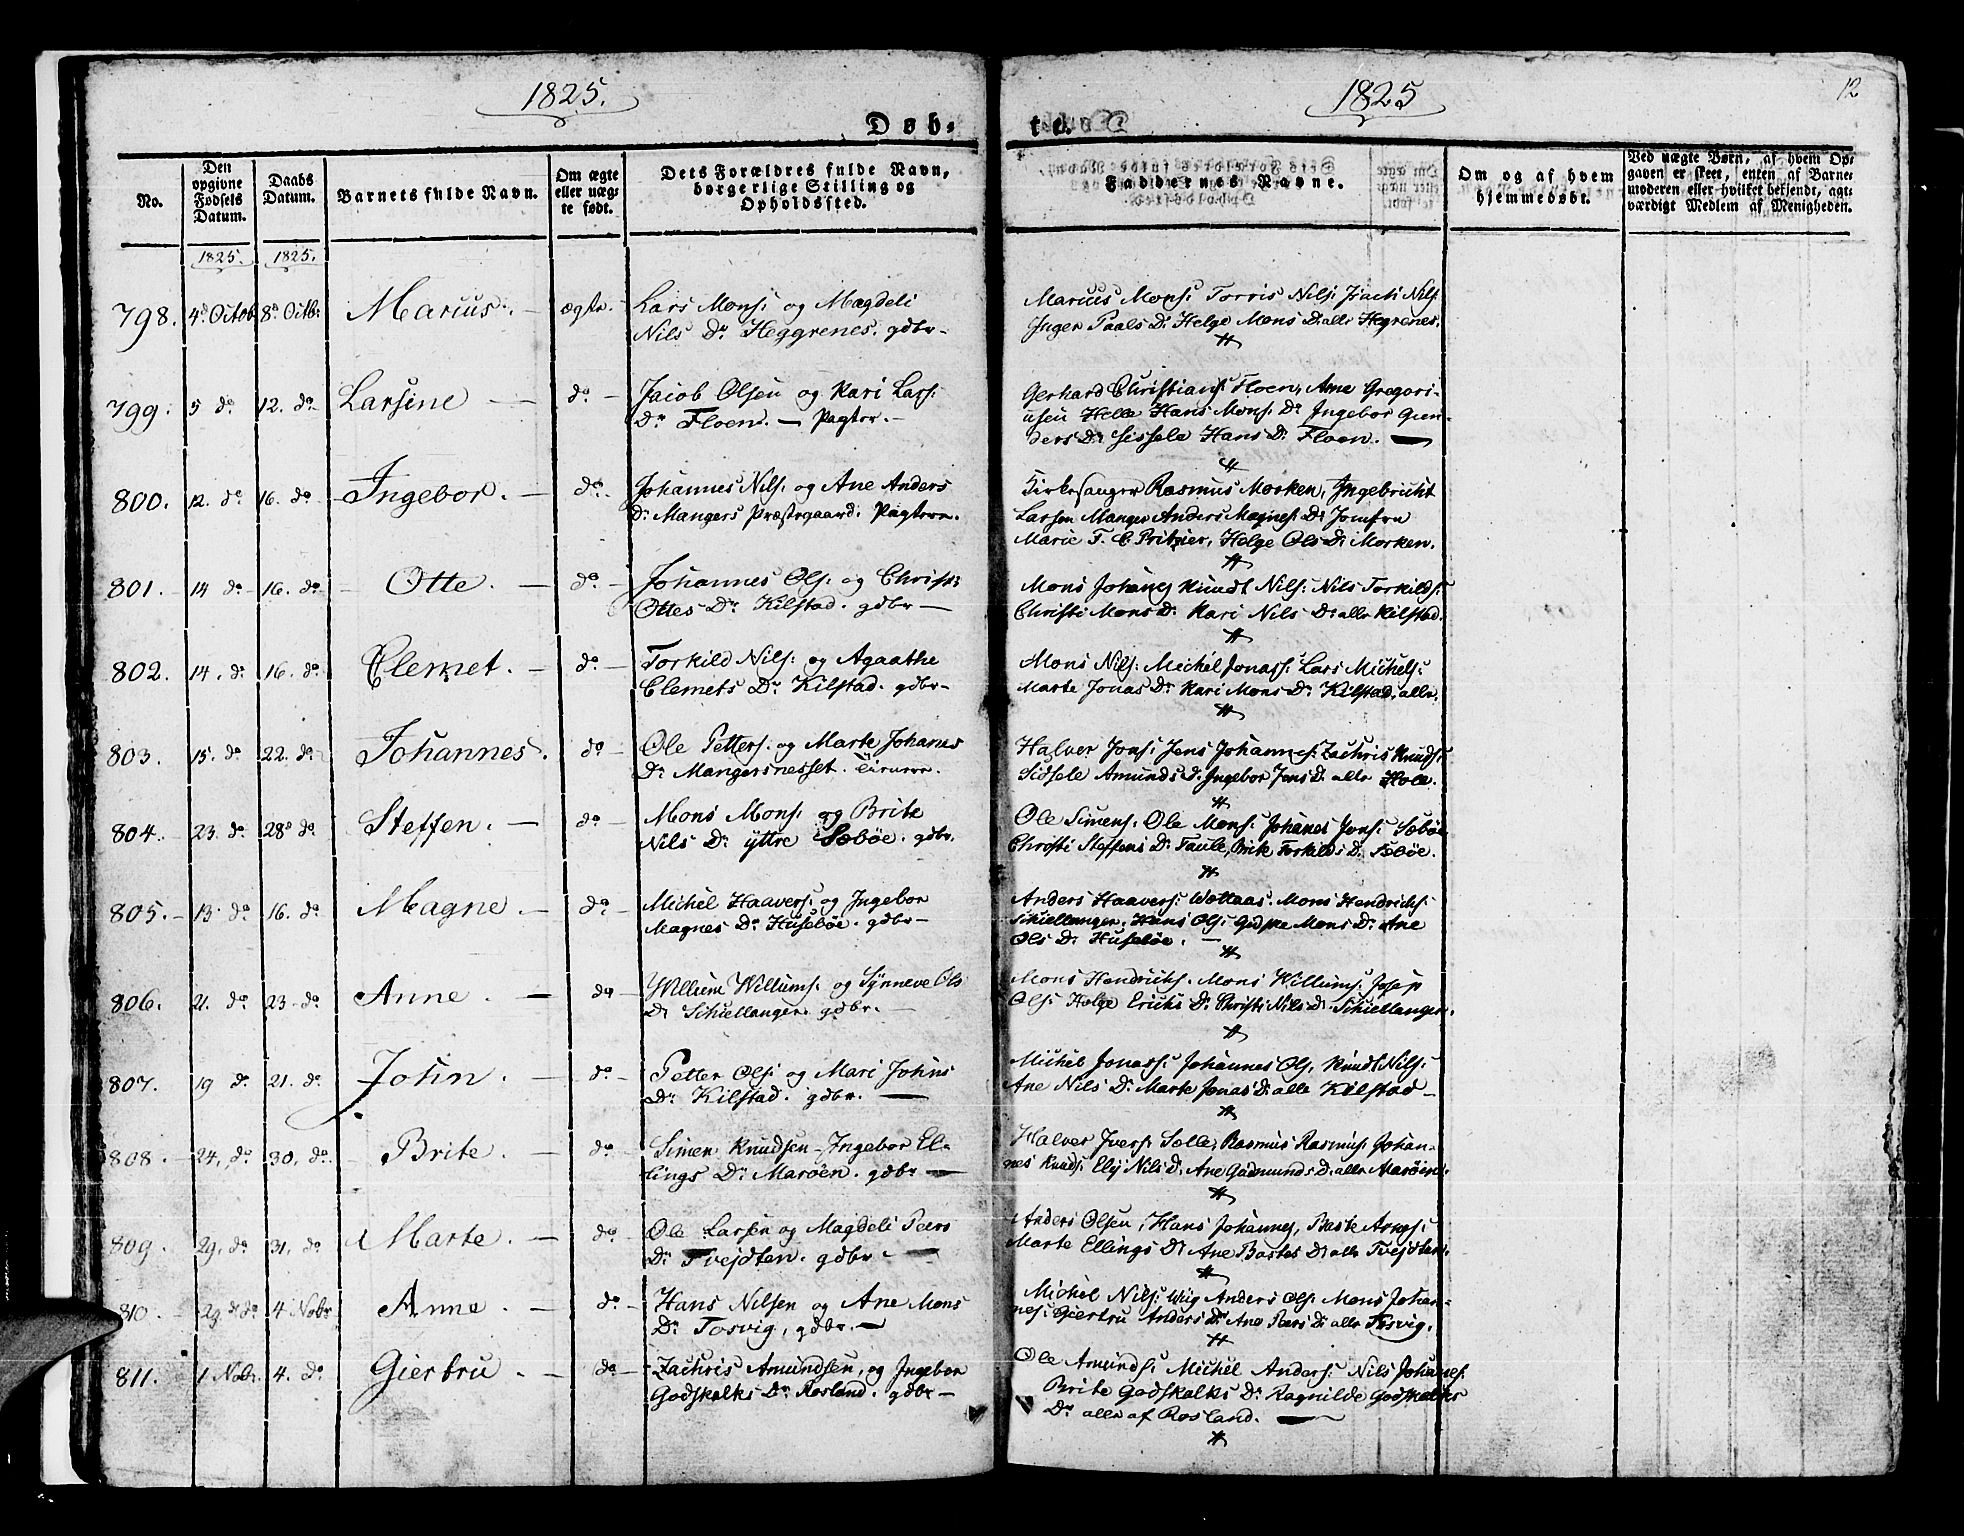 1825.
1825
12
Døb-
te.
No.
Den opgivne Fødsels Datum.
Daabs Datum.
Barnets fulde Navn.
Om ægte eller uægte født.
Dets Forældres fulde Navn, borgerlige Stilling og Opholdssted.
Faddernes Navne.
Om og af hvem hjemmedøbt.
Ved uægte Børn, af hvem Opgaven er skeet, enten af Barnemoderen eller hvilket bekjendt, agtværdigt Medlem af Menigheden.
1825. 1825.
798. 4d. Octob 8d. Octb: Marius. — ægte. — Lars Mons: og Magdeli
Nils Dr. Heggrenes. gdbr —
Marius Mons: Torris Nils: Nils:
Inger Paals Dr. Helge Mons Dr. alle Hegrenes.
799. 5 do. 12. do. Larsine — do. — Jacob Olsen og Kari Lars:
Dr. Floen. — Pagter. —
Gerhard Christians: Floen, Arne Gregori-
usen Helle Hans Mons: Dr. Ingebor Gun-
ders Dr. Sissele Hans Dr. Floen. —
800. 12. do. 16. do. Ingebor. — do. Johannes Nils: og Ane Anders
Dr. Mangers Præstegaard. Pagtere.
Kirkesanger Rasmus Morken, Ingebricht
Larsen Manger Anders Magnes: Dr. Jomfru
Marie F. C. Pritzier, Helge Ols Dr. Morken.
801. 14 do. 16. do. Otte. — do. — Johannes Ols: og Christi
Ottes Dr. Kilstad. gdbr —
Mons Johanes Knudt Nils: Nils Torkilds:
Christi Mons Dr. Kari Nils Dr. alle Kilstad.
802. 14. do. 16. do. Clemet. — do. — Torkild Nils: og Agaathe
Clemets Dr. Kilstad. gdbr —
Mons Nils: Michel Jonas: Lars Michels:
Marte Jonas Dr. Kari Mons Dr. Kilstad alle.
803. 15. do. 22. do. Johannes. do. — Ole Petters: og Marte Johanes
Dr. Mangersnesset.
Halver Jons: Jens Johannes: Zachris Knuds:
Sidsele Amunds Dr. Ingebor Jens Dr. alle Hole.
804. 23. do. 28d do. Steffen. — do. — Mons Mons: og Brite
Nils Dr. yttre Sæbøe. gdbr.
Ole Simens: Ole Mons: Johanes Jons: Sæbøe
Christi Steffens Dr. Taule, Brite Torkilds Dr. Sæbøe.
805. — 13. do. 16. do. Magne. — do. — Michel Haavers: og Ingebor
Magnes Dr. Husebøe. gdbr —
Anders Haavers: Mons Hendrichs:
Schiellanger. Hans Ols: Gidske Mons Dr. Ane
Ols Dr. Husebøe. —
806. 21. do. 23. do. Anne. — do. — Willum Willums: og Synneve Ols
Dr. Schiellanger. gdbr. —
Mons Hendrichs. Mons Willums: Josep
Ols: Helge Erichs Dr. Christi Nils Dr. Schiellanger.
807. 19 do. 21. do. John. — do. — Petter Ols: og Mari Johns
Dr. Kilstad. gdbr. —
Michel Jonas: Johannes Ols, Knudt Nils:
Ane Nils Dr. Marte Jonas Dr. alle Kilstad —
808. — 24. do. 30. do. Brite. — do. Simen Knudsen — Ingebor El-
lings Dr. Marøen. gdbr —
Halver Ivers: Solle, Rasmus Rasmus: Johan-
nes Knuds: Elij Nils Dr. Ane Gudmunds Dr. alle Marøen.
809. 29. do. 31. do. Marte. — do. — Ole Larsen og Magdeli Peers
Dr. Tvejten. gdbr. —
Anders Olsen, Hans Johannes, Baste Arnes:
Marte Ellings Dr. Ane Bastes Dr. alle Tvejten.
810. 29 do. 4 Nobr Anne. — do. — Hans Nilsen og Ane Mons
Dr. Tosvig, gdbr. —
Michel Nils: Wiig Anders Ols: Mons Johan-
nes: Giertru Anders Dr. Ane Peers Dr. alle Tosvig.
811. 1 Nobr. 4. do. Giertru. — do — Zachris Amundsen, og Ingebor
Godskalks Dr. Rosland. gdbr —
Ole Amunds: Michel Anders: Nils Johanes:
Brite Godskalks Dr. Ragnilde Godskalks
Dr. alle af Rosland. —